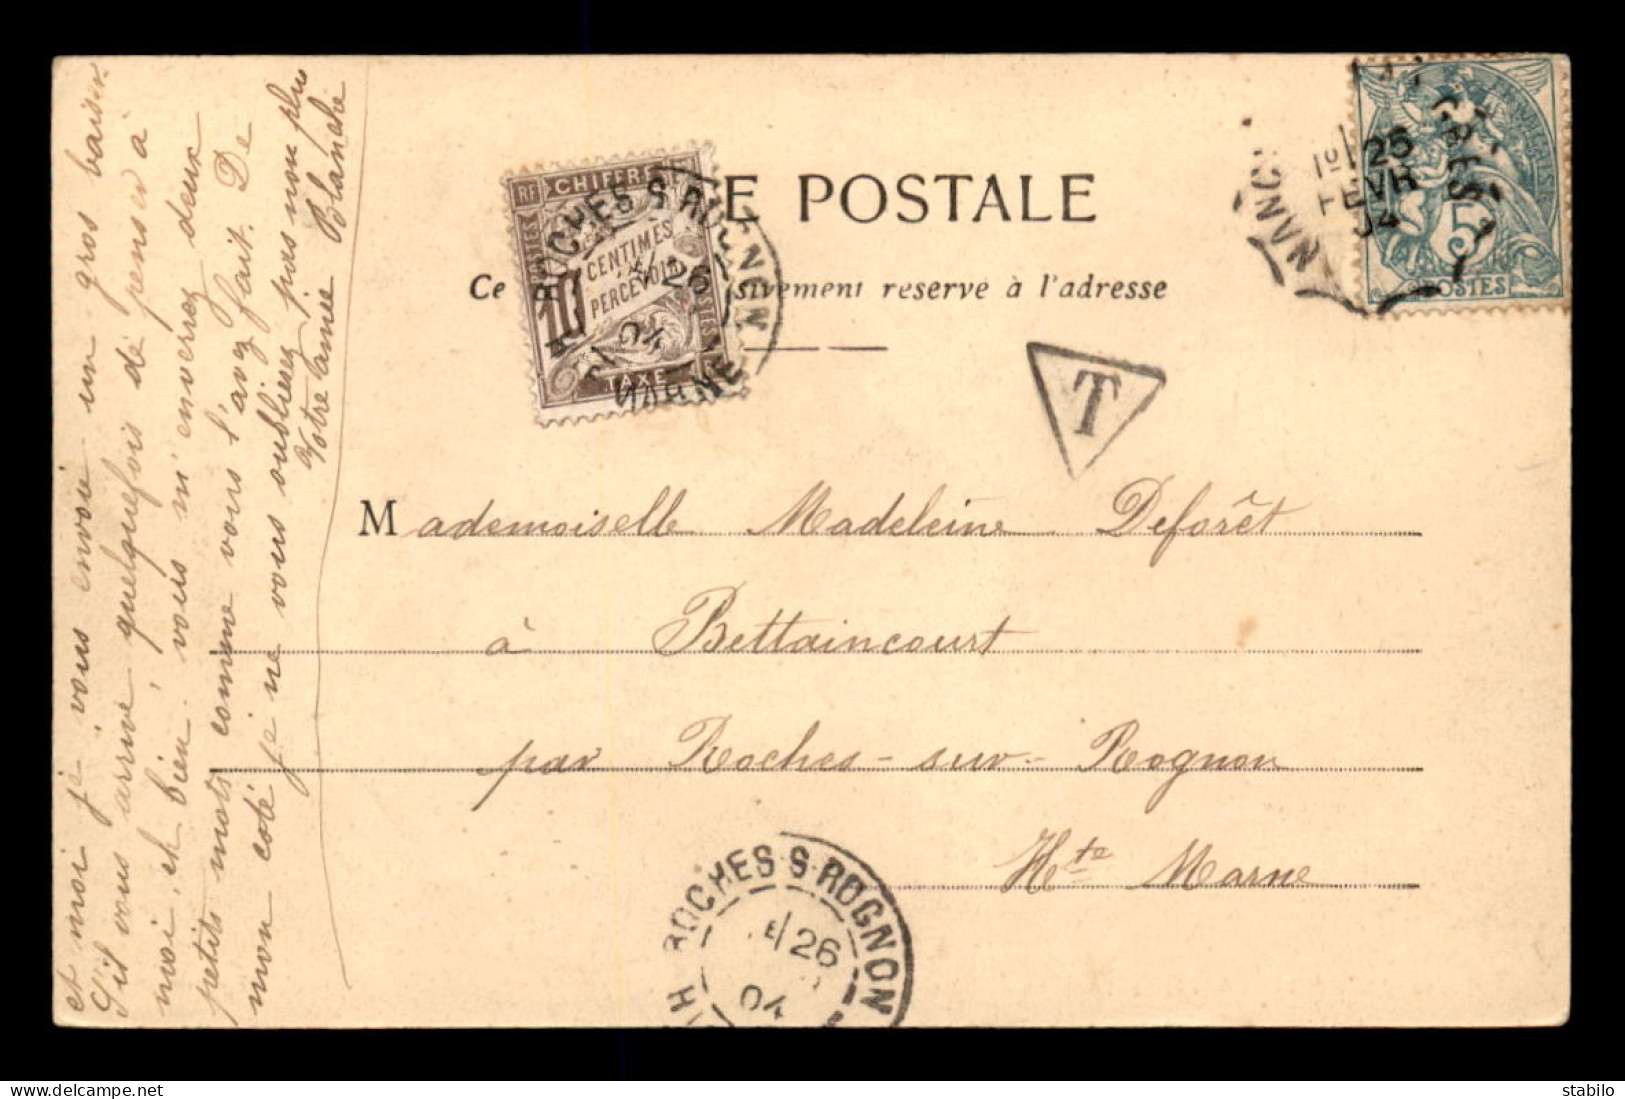 E POSTALE
Ce sivement reservé à l'adresse
RF CHIFFRE
POSTES
10 CENTIMES
PERCEVOIR
TAXE
ROCHES S ROGNON
26
04
H MARNE
NANCY
1º/25
FEVR
04
5
POSTES
T
Mademoiselle Madeleine Deforêt
à Bettaincourt
par Roches-sur-Rognon
Hte Marne
ROCHES S ROGNON
E/26
04
et moi je vous envoie un gros baiser.
S'il vous arrive quelquefois de penser à
moi, eh bien! vous m'enverrez deux
petits mots comme vous l'avez fait. De
mon coté je ne vous oublierez pas non plus
Votre amie Blanche
stabilo